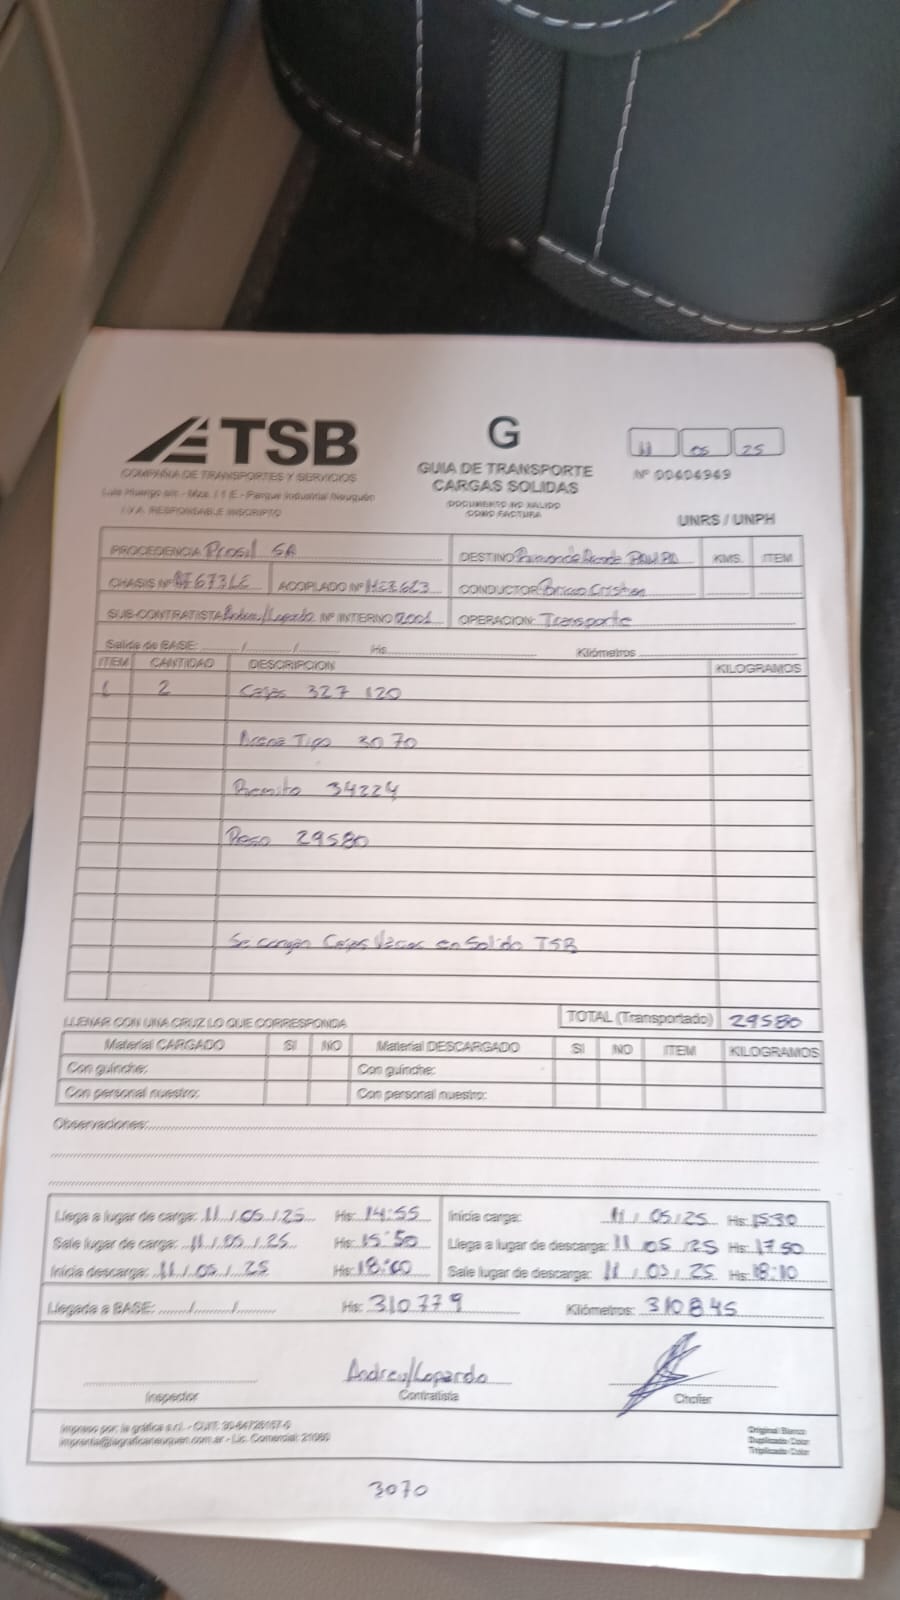 TSB
COMPAÑIA DE TRANSPORTES Y SERVICIOS
Luis Huergo s/n. - Mza. I 1 E. - Parque Industrial Neuquén
I.V.A. RESPONSABLE INSCRIPTO
G
GUIA DE TRANSPORTE
CARGAS SOLIDAS
DOCUMENTO NO VALIDO
COMO FACTURA
11 05 25
Nº 00404949
UNRS / UNPH
PROCEDENCIA Prosil SA
DESTINO KMS. ITEM
CHASIS Nº 673LE ACOPLADO Nº CONDUCTOR: Cristian
SUB-CONTRATISTA Andreu/Lopardo Nº INTERNO 2001 OPERACION: Transporte
Salida de BASE: / / Hs Kilómetros
ITEM CANTIDAD DESCRIPCION KILOGRAMOS
1 2 Cajas 327 120
Arena Tipo 3070
Remito 34224
Peso 29580
Se cargan Cajas Vacias en Solido TSB
LLENAR CON UNA CRUZ LO QUE CORRESPONDA
TOTAL (Transportado) 29580
Material CARGADO SI NO Material DESCARGADO SI NO ITEM KILOGRAMOS
Con guinche: Con guinche:
Con personal nuestro: Con personal nuestro:
Observaciones:
Llega a lugar de carga: 11/05/25 Hs: 14:55 Inicia carga: 11/05/25 Hs: 15:30
Sale lugar de carga: 11/05/25 Hs: 15:50 Llega a lugar de descarga: 11 05/25 Hs: 17:50
Inicia descarga: 11/05/25 Hs: 18:00 Sale lugar de descarga: 11/05/25 Hs: 18:10
Llegada a BASE: / / Hs: 310779 Kilómetros: 310845
Andreu/Lopardo
Inspector Contratista Chofer
Impreso por: la gráfica s.r.l. - CUIT: 30-64728167-9
imprenta@lagraficaneuquen.com.ar - Lic. Comercial: 21060
Original: Blanco
Duplicado: Color
Triplicado: Color
3070